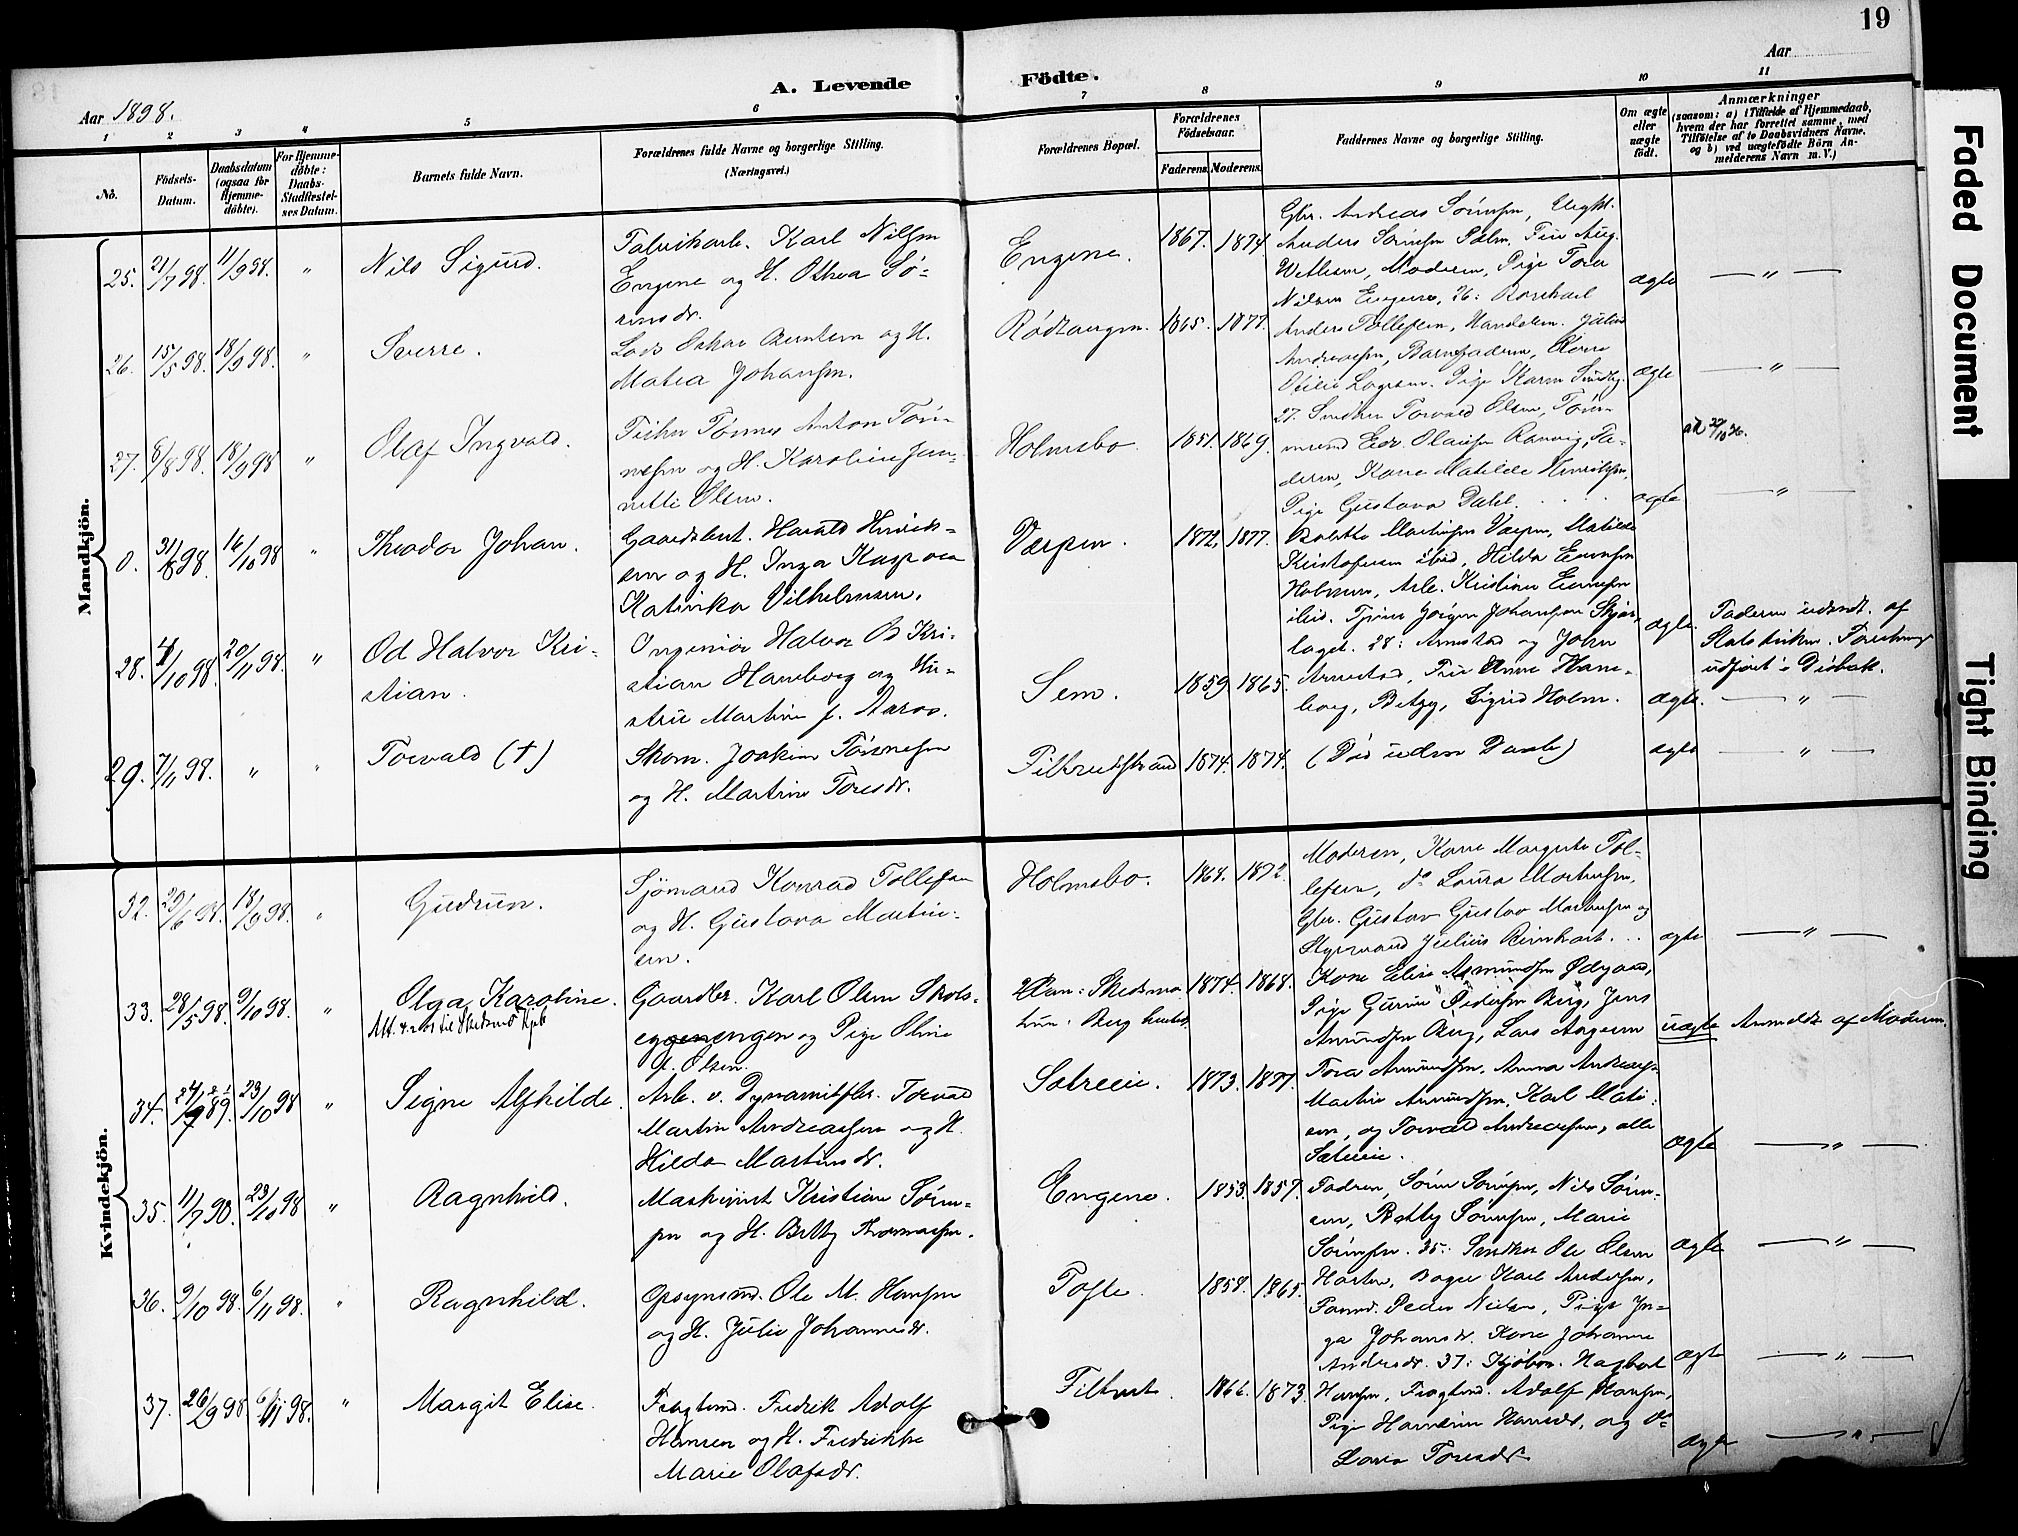 19
Aar
Aar 1898.
A. Levende
Födte.
1 2 3 4 5 6 7 8 9 10 11
No.
Födsels-
Datum.
Daabsdatum
(ogsaa for
Hjemme-
döbte).
For Hjemme-
döbte:
Daabs-
Stadfestel-
ses Datum.
Barnets fulde Navn.
Forældrenes fulde Navne og borgerlige Stilling.
(Næringsvei.)
Forældrenes Bopæl.
Forældrenes
Födselsaar.
Faderens. Moderens.
Faddernes Navne og borgerlige Stilling.
Om ægte
eller
uægte
födt.
Anmærkninger
(saasom: a) i Tilfælde af Hjemmedaab,
hvem der har forrettet samme, med
Tilföielse af to Daabsvidners Navne,
og b) ved uægtefödte Börn An-
melderens Navn m. V.)
Mandkjön.
25. 21/7 98. 11/9 98. " Nils Sigurd.
Fabrikarb. Karl Nilsen
Engene og H. Othea Sö-
rensdr.
Engene. 1867. 1874.
Gbr. Andreas Sörensen,
Anders Sörensen Palm, Fru Aug.
Moderen, Pige Tora
Nilsen Engene, 26:
ægte — " —
26. 15/5 98. 18/9 98. " Sverre.
Lods Oskar Berntsen og H.
Matea Johansen.
Rödtangen. 1865. 1877.
Anders Tollefsen, Handelsm. Julius
Andreassen, Barnefaderen, Kone
Otilie Pige Karen
ægte — " —
27. 6/8 98. 18/9 98 " Olaf Ingvald.
Fisker Tönnes Anton Tön-
nesen og H. Karoline Jen-
sine Olsen.
Holmsbo. 1851. 1869.
27. Snedker Torvald Olsen, Töm-
mermand Edv. Olausen Ranvig, Fa-
deren, Kone Matilde Henriksen,
Pige Gustava Dahl. . . . .
ægte — " —
0. 31/8 98. 16/10 98 " Theodor Johan.
Gaardsbest. Harald Henrik-
sen og H. Inga Kaspara
Katinka Vilhelmsen.
Værpen. 1872. 1877.
Bolette Martinsen Værpen, Matilde
Kristofersen ibid, Hilda Evensen
Holmen, Arb. Kristian Evensen
ibid. Tjener Jörgen Johansen
ægte. Faderen udmdt. af
Statskirken.
udfört i Dröbak.
28. 4/10 98. 20/11 98. " Od Halvor Kri-
stian.
Ingeniör Halvor B. Kri-
stian Haneborg og Hu-
stru Martine f. Aaros.
Sem. 1859. 1865.
28: Arnestad og John
Arnestad, Fru Anna Hane-
borg, Betzy, Sigrid Holm.
ægte. — " —
29. 7/11 98. " " Torvald (†)
Skom. Joakim Tönnesen
og H. Martine Toresdr.
Filtvedtstrand 1874. 1874. (Död uden Daab) ægte — " —
Kvindekjön.
32. 29/6 98. 18/9 98. " Gudrun.
Sjömand Konrad Tollefsen
og H. Gustava Martin-
sen.
Holmsbo. 1868. 1872.
Moderen, Kone Margrete Tol-
lefsen, do Laura Martinsen,
Gbr. Gustav Gustav Martinsen og
Styrmand Julius Reinhart. . .
ægte — " —
33. 28/5 98. 9/10 98. " Olga Karoline.
Gaardbr. Karl Olsen Skols-
eggenengen og Pige Oline
f. Olsen.
Han: Skedsmo
hun: Berg 1874. 1868.
Kone Elise Asmundsen Ödegaard,
Pige Gunine Pedersen Berg, Jens
Amundsen Berg, Lars Aageson
uægte Anmeldt af Moderen.
34. 24/7 89. 23/10 98 " Signe Alfhilde.
Arb. v. Dynamitfbr. Torvald
Martin Andreassen og H.
Hilda Martinsdr.
Sætreeie. 1873. 1877.
Tora Amundsen, Anna Andreassen
Martin Amundsen, Karl Mati-
sen, og Torvald Andreassen, alle
Sætreeie.
ægte — " —
35. 11/7 90. 23/10 98 " Ragnhild.
Maskinist Kristian Sören-
sen og H. Betty Thomassen.
Engene. 1853. 1857.
Fadren, Sörin Sörensen, Nils Sören-
sen, Betty Sörensen, Marie
Sörensen. 35: Snedker Ole Olsen
ægte — " —
36. 9/10 98. 6/11 98. " Ragnhild.
Opsynsmd. Ole M. Hansen
og H. Julie Johannesdr.
Tofte. 1858. 1865.
Karl Andersen,
Peder Nielsen, Pige In-
ga Johansdr. Kone Johanne
Andersdr. 37: Kjöbm. Hagbart
ægte — " —
37. 26/9 98 6/11 98. " Margit Elise.
Fragtemd. Fredrik Adolf
Hansen og H. Fredrikke
Marie Olafsdr.
Filtvet. 1866. 1873.
Hansen, Fragtemd. Adolf Hansen,
Pige Hansdr. og do
Lovise Toresdr
ægte — " —
Faded Document
Tight Binding